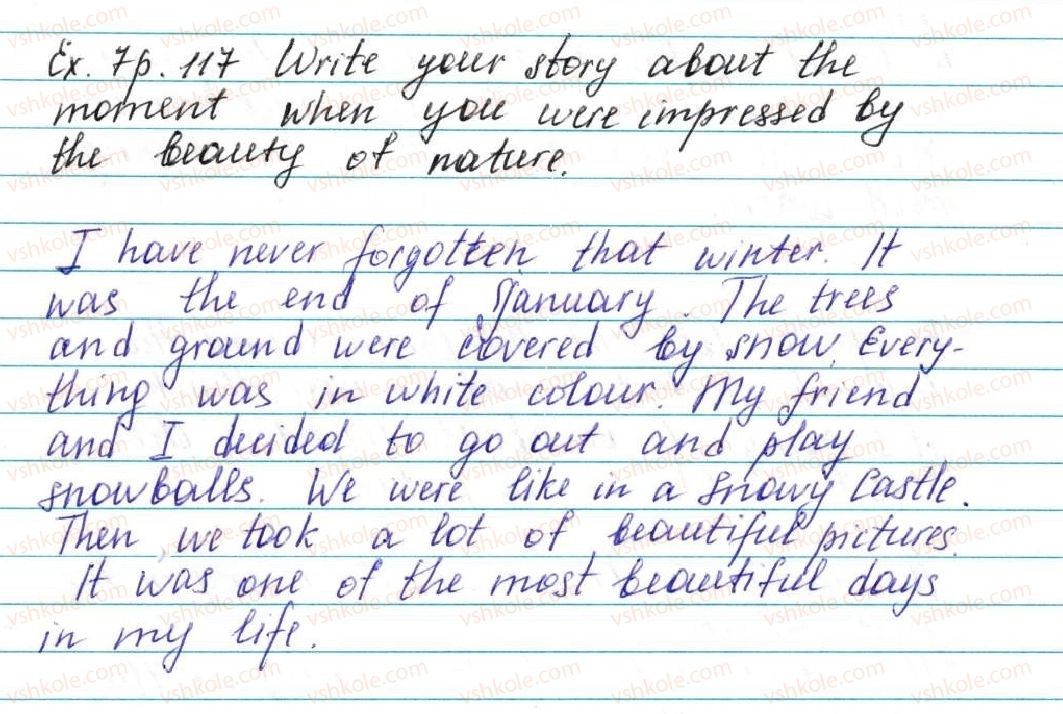 Ex. 7 p. 117 Write your story about the
moment when you were impressed by
the beauty of nature.
I have never forgotten that winter. It
was the end of January. The trees
and ground were covered by snow. Every-
thing was in white colour. My friend
and I decided to go out and play
snowballs. We were like in a snowy castle.
Then we took a lot of beautiful pictures.
It was one of the most beautiful days
in my life.